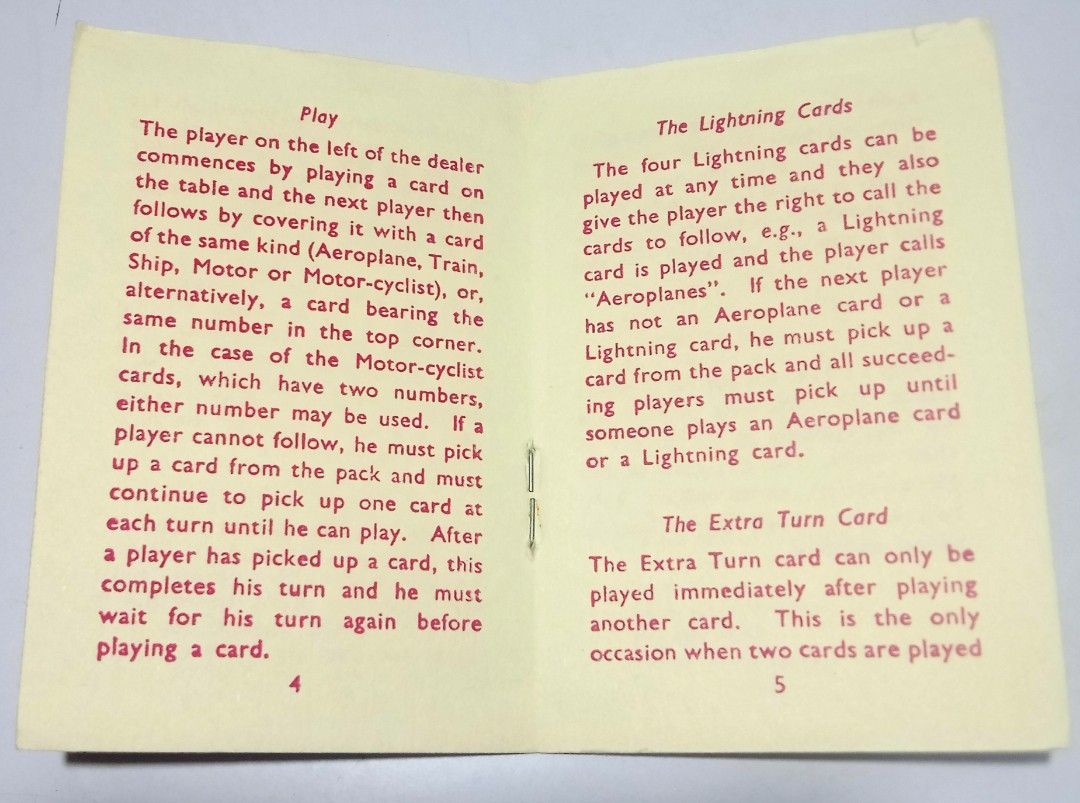 Play
The player on the left of the dealer
commences by playing a card on
the table and the next player then
follows by covering it with a card
of the same kind (Aeroplane, Train,
Ship, Motor or Motor-cyclist), or,
alternatively, a card bearing the
same number in the top corner.
In the case of the Motor-cyclist
cards, which have two numbers,
either number may be used. If a
player cannot follow, he must pick
up a card from the pack and must
continue to pick up one card at
each turn until he can play. After
a player has picked up a card, this
completes his turn and he must
wait for his turn again before
playing a card.
4
The Lightning Cards
The four Lightning cards can be
played at any time and they also
give the player the right to call the
cards to follow, e.g., a Lightning
card is played and the player calls
"Aeroplanes". If the next player
has not an Aeroplane card or a
Lightning card, he must pick up a
card from the pack and all succeed-
ing players must pick up until
someone plays an Aeroplane card
or a Lightning card.
The Extra Turn Card
The Extra Turn card can only be
played immediately after playing
another card. This is the only
occasion when two cards are played
5